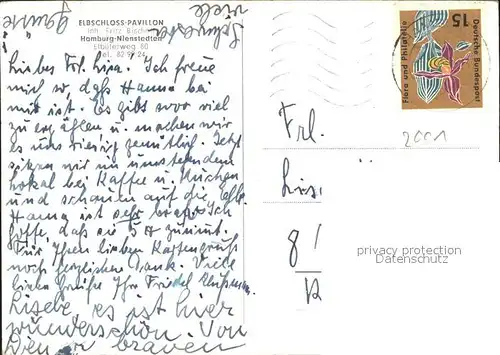 ELBSCHLOSS-PAVILLON
Inh. Fritz
Hamburg-Nienstedten
Elbuferweg 80
Tel. 82 99 24
viele
Liebes Frl. Lisa. Ich freue
mich so, daß Hanna bei
mir ist. Es gibt soo viel
zu erzählen u. machen wir
es uns riesig gemütlich. Jetzt
sitzen wir im umstehenden
Lokal bei Kaffee u. Kuchen
und schauen auf die Elbe.
Hanna ist sehr brav. Ich
hoffe, daß sie zunimmt.
Für Ihren lieben Kartengruß
noch herzlichen Dank. Viele
liebe Grüße Ihre Friedel
Lisele, es ist hier
wunderschön. Von
Deiner braven
15
Deutsche Bundespost
Flora und Philatelie
Frl.
2001
8
privacy protection
Datenschutz